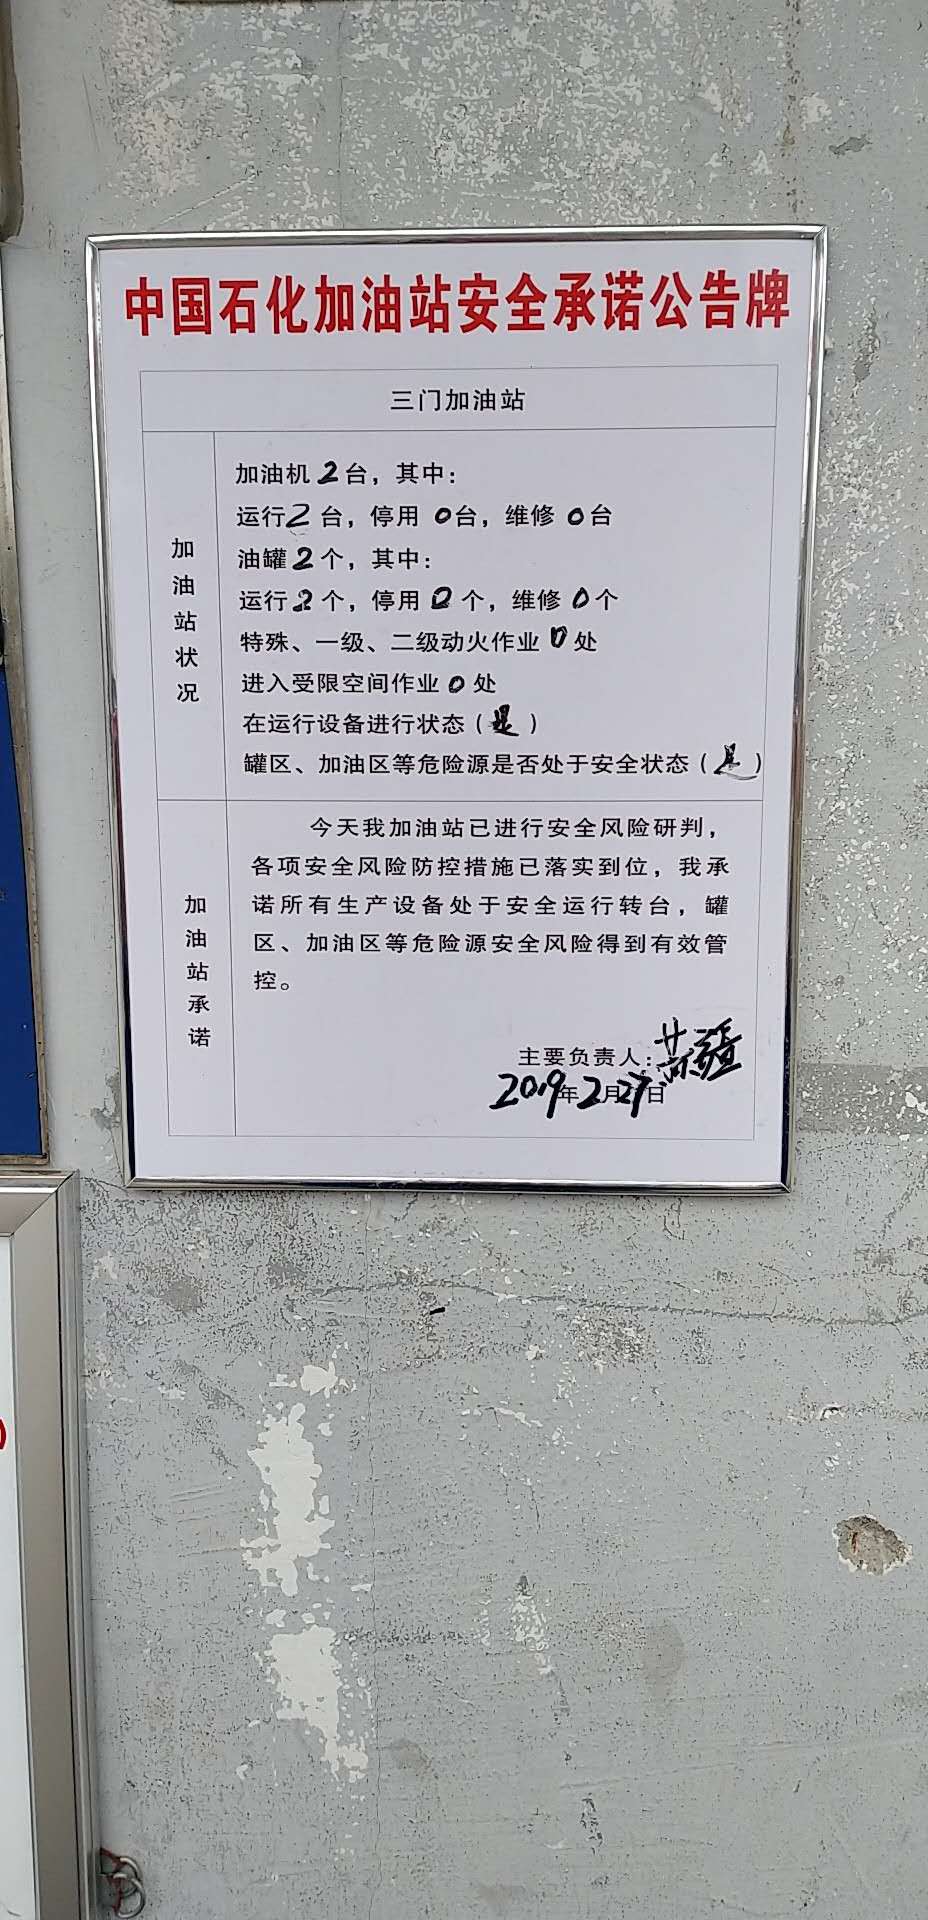 中国石化加油站安全承诺公告牌
三门加油站
加油站状况
加油机 2 台，其中：
运行 2 台，停用 0 台，维修 0 台
油罐 2 个，其中：
运行 2 个，停用 0 个，维修 0 个
特殊、一级、二级动火作业 0 处
进入受限空间作业 0 处
在运行设备进行状态（是）
罐区、加油区等危险源是否处于安全状态（是）
加油站承诺
今天我加油站已进行安全风险研判，
各项安全风险防控措施已落实到位，我承
诺所有生产设备处于安全运行转台，罐
区、加油区等危险源安全风险得到有效管
控。
主要负责人：
2019年2月27日